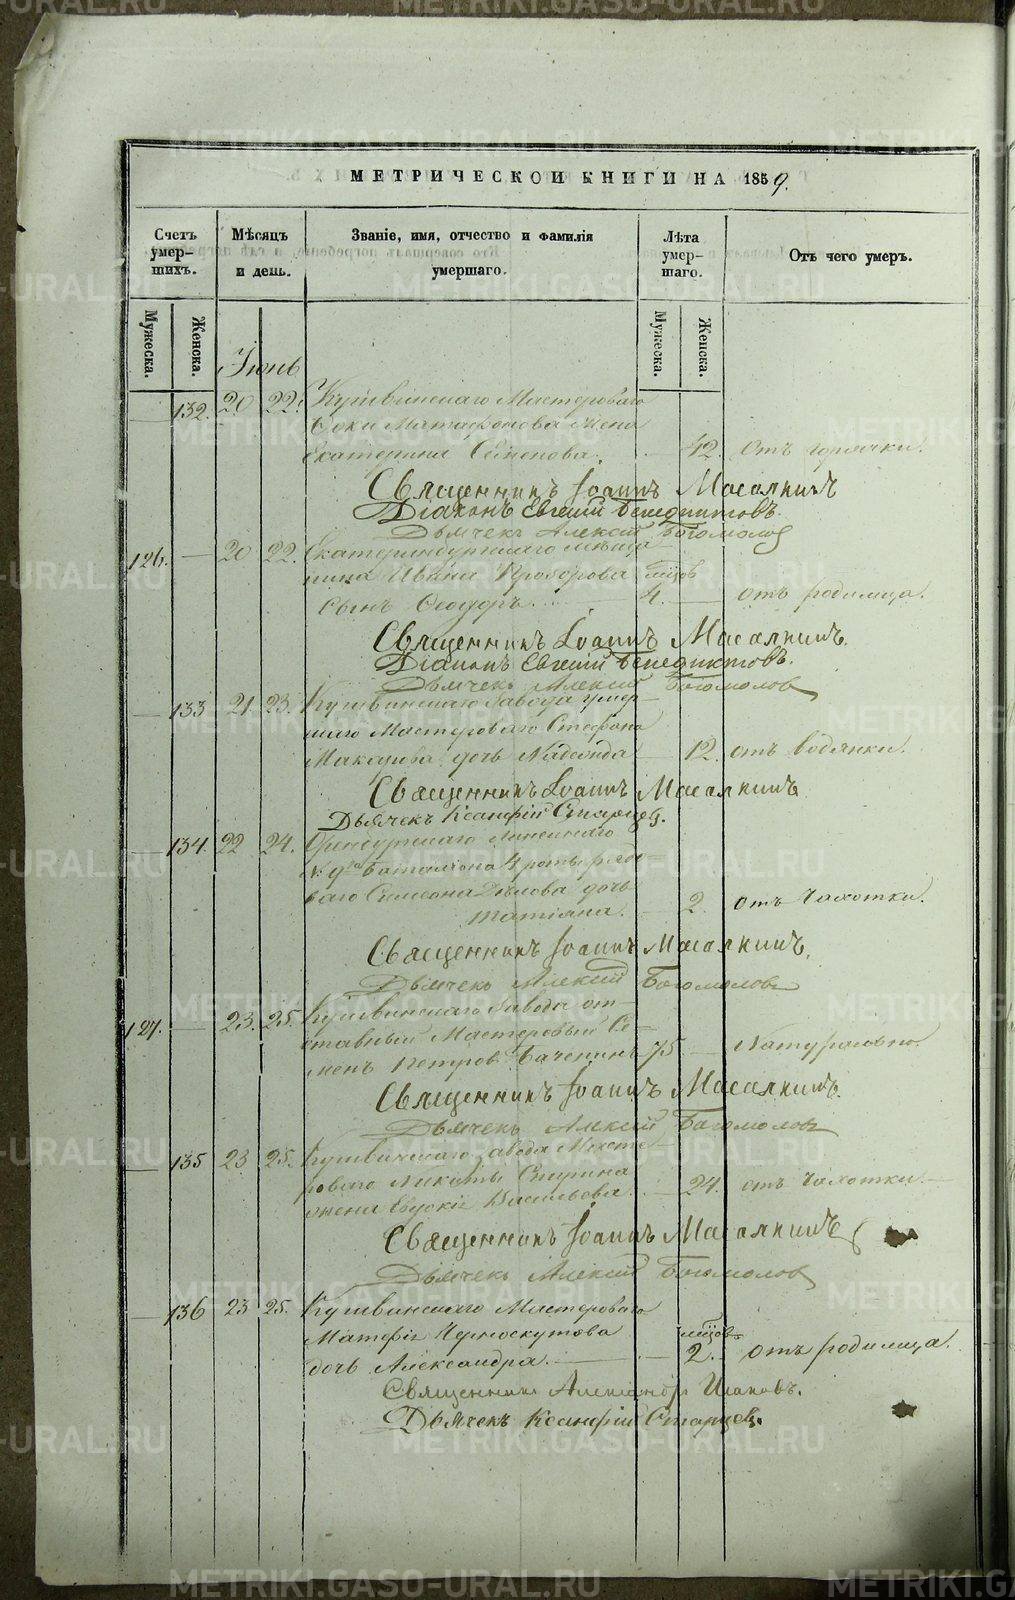 МЕТРИЧЕСКОИ КНИГИ НА 1859.
Счетъ умер-шихъ.
Мѣсяцъ и день.
Званіе, имя, отчество и фамилія умершаго.
Лѣта умер-шаго.
Отъ чего умеръ.
Мужеска. Женска. Мужеска. Женска.
Іюнь
132. 20 22. Кушвинскаго Мастероваго
жена
Екатерина Семенова. 42. отъ горячки.
Священникъ Іоаннъ Масалкинъ
Діаконъ Евгеній Бенедиктовъ.
Дьячекъ Алексій Богомолов
126. 20 22. Екатеринбургскаго мѣща-
нина Ивана Прохорова мѣсцов
Сынъ Ѳеодоръ. 4. отъ родимца.
Священникъ Іоаннъ Масалкинъ.
Діаконъ Евгеній Бенедиктовъ.
Дьячекъ Алексій Богомолов
133 21 23. Кушвинскаго завода умер-
шаго Мастероваго Стефана
дочь Надежда 12. отъ водянки.
Священникъ Іоаннъ Масалкинъ
Дьячекъ Ксанфій Старцев.
134. 22 24. Оренбургскаго линейнаго
№ 9го Баталіона 4 роты рядо-
ваго Симеона дочь
Татіана. 2. отъ Чахотки.
Священникъ Іоаннъ Масалкинъ.
Дьячекъ Алексій Богомолов
127. 23. 25. Кушвинскаго завода от-
ставный Мастеровый Се-
менъ Петров 75 Натурально.
Священникъ Іоаннъ Масалкинъ.
Дьячекъ Алексій Богомолов
135 23 25. Кушвинскаго завода Масте-
роваго Никиты
жена Васильева. 24. отъ Чахотки.
Священникъ Іоаннъ Масалкинъ
Дьячекъ Алексій Богомолов
136 23 25. Кушвинскаго Мастероваго
Матфія Черноскутова мѣсцов
дочь Александра. 2. отъ родимца.
Священник Александр
Дьячекъ Ксанфій Старцев.
METRIKI.GASO-URAL.RU